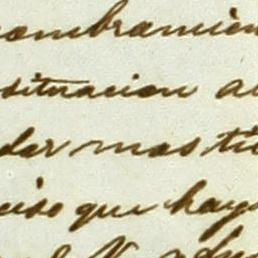 nombramien
situacion a
dar mas tie
ciso que haya